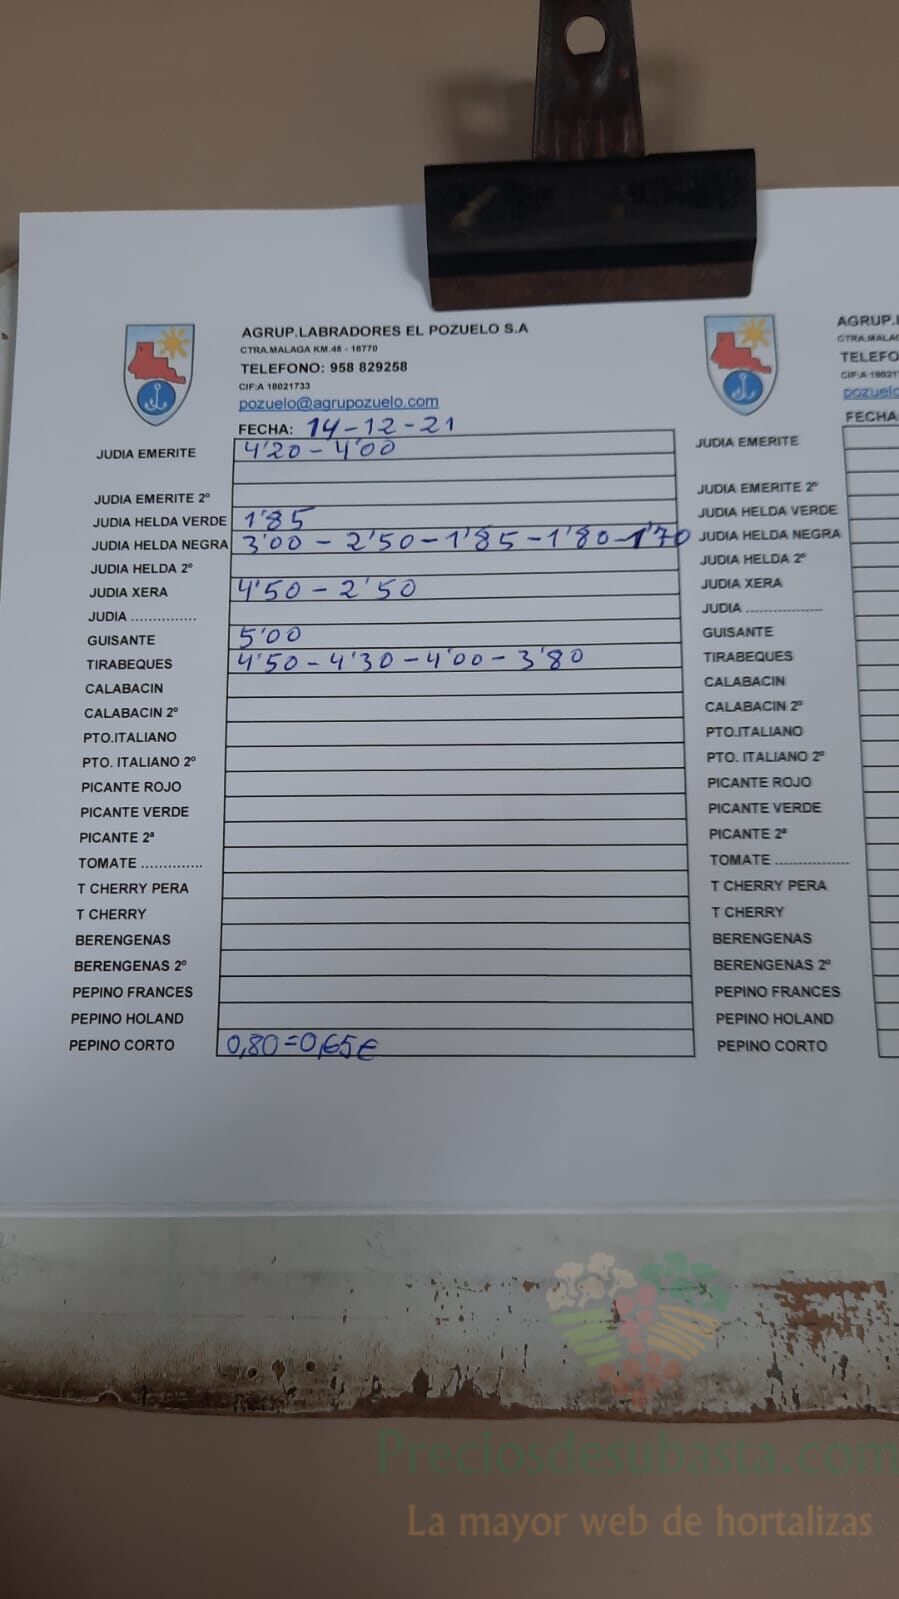 AGRUP.LABRADORES EL POZUELO S.A
CTRA.MALAGA KM.46 - 18770
TELEFONO: 958 829258
CIF:A 18021733
pozuelo@agrupozuelo.com
FECHA: 14-12-21
JUDIA EMERITE 4'20 - 4'00
JUDIA EMERITE 2º
JUDIA HELDA VERDE 1'85
JUDIA HELDA NEGRA 3'00 - 2'50 - 1'85 - 1'80 - 1'70
JUDIA HELDA 2º
JUDIA XERA 4'50 - 2'50
JUDIA ...............
GUISANTE 5'00
TIRABEQUES 4'50 - 4'30 - 4'00 - 3'80
CALABACIN
CALABACIN 2º
PTO.ITALIANO
PTO. ITALIANO 2º
PICANTE ROJO
PICANTE VERDE
PICANTE 2ª
TOMATE ..............
T CHERRY PERA
T CHERRY
BERENGENAS
BERENGENAS 2º
PEPINO FRANCES
PEPINO HOLAND
PEPINO CORTO 0,80=0,65€
AGRUP.L
CTRA.MALAG
TELEFO
CIF:A 18021
pozuelo
FECHA
JUDIA EMERITE
JUDIA EMERITE 2º
JUDIA HELDA VERDE
JUDIA HELDA NEGRA
JUDIA HELDA 2º
JUDIA XERA
JUDIA .................
GUISANTE
TIRABEQUES
CALABACIN
CALABACIN 2º
PTO.ITALIANO
PTO. ITALIANO 2º
PICANTE ROJO
PICANTE VERDE
PICANTE 2ª
TOMATE .................
T CHERRY PERA
T CHERRY
BERENGENAS
BERENGENAS 2º
PEPINO FRANCES
PEPINO HOLAND
PEPINO CORTO
Preciosdesubasta.com
La mayor web de hortalizas